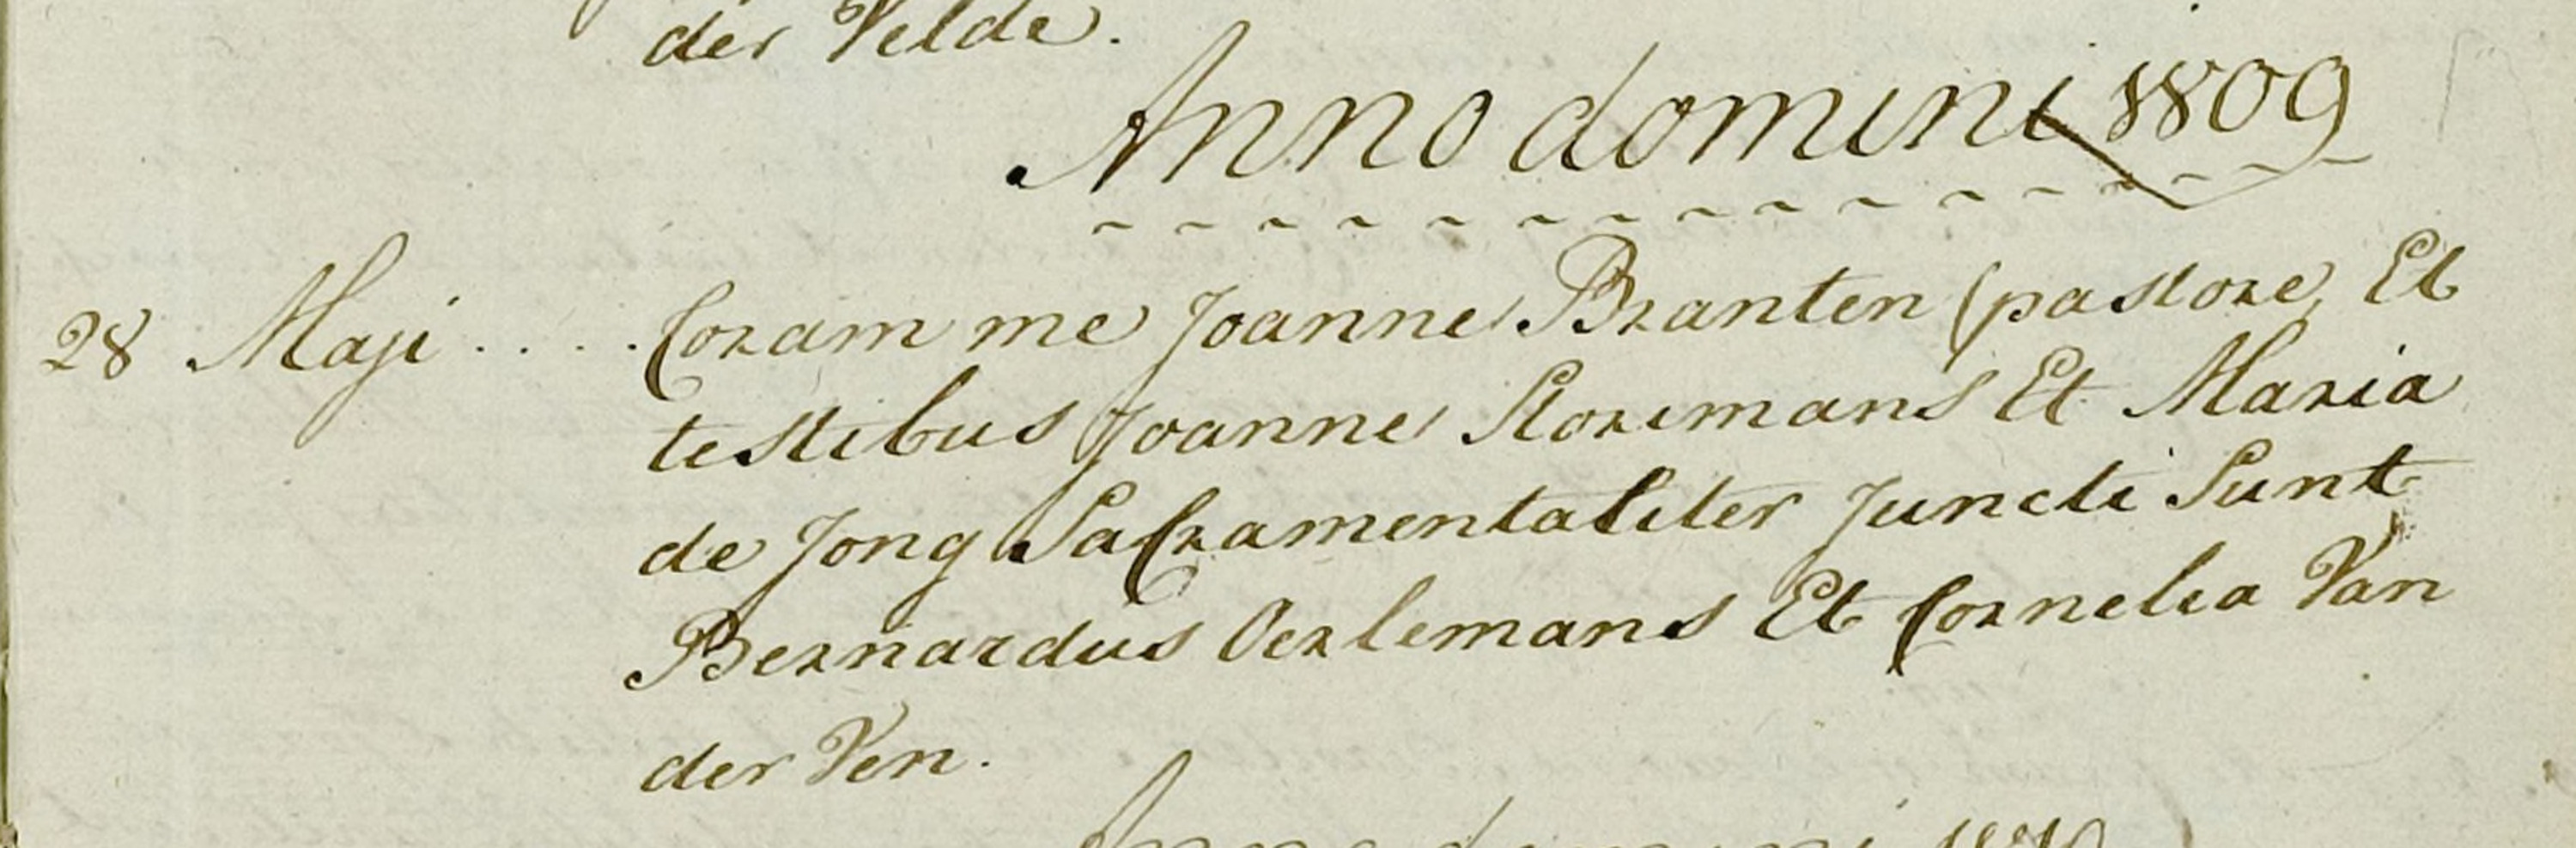 der Velde.
Anno domini 1809
28 Maji . . . . Coram me Joanne Branten (pastore, Et
testibus Joanne Storimans Et Maria
de Jong SaCramentaliter Juncti Sunt
Bernardus Oerlemans Et Cornelia Van
der Ven.
Anno domini